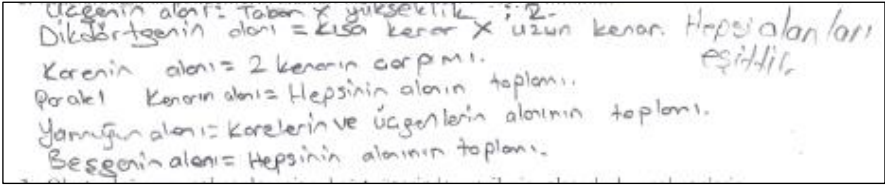 Üçgenin alanı: Taban x yükseklik : 2.
Dikdörtgenin alanı = kısa kenar x uzun kenar. Hepsi alanları eşittir.
Karenin alanı = 2 kenarın çarpımı.
Paralel Kenarın alanı = Hepsinin alanın toplamı.
Yamuğun alanı = karelerin ve üçgenlerin alanının toplamı.
Beşgenin alanı = Hepsinin alanının toplamı.